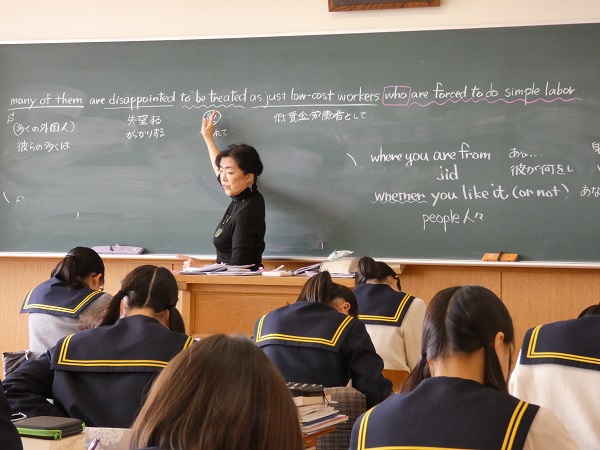 many of them are disappointed to be treated as just low-cost workers who are forced to do simple labor
S
(多くの外国人) 失望する 低賃金労働者として
彼らの多くは がっかりする れて
where you are from あな
did 彼が何をし
whether you like it (or not) あな
people 人々